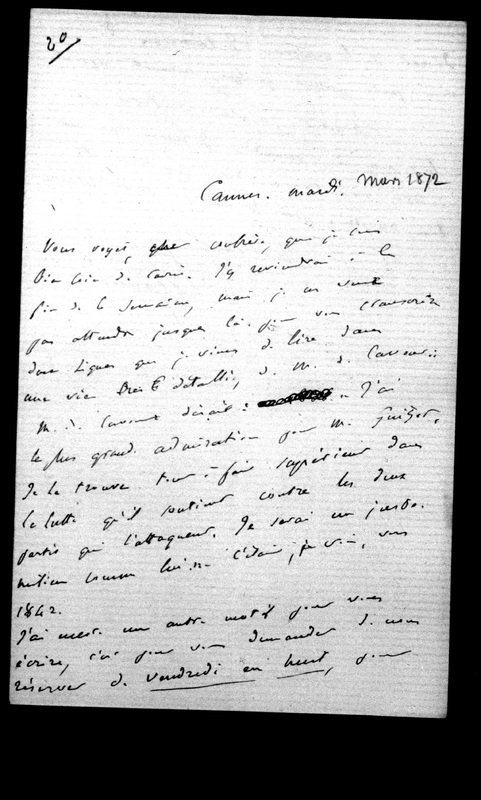 20
Cannes. mardi. Mars 1872
Vous voyez, cher confrère, que je suis
bien loin de Paris. J'y reviendrai à la
fin de la semaine, mais je ne veux
pas attendre jusque là pour vous transcrire
deux lignes que je viens de lire dans
une vie très détaillée de M. de Cavour :
M. de Cavour disait : " J'ai
la plus grande admiration pour M. Guizot,
Je le trouve tout-à-fait supérieur dans
la lutte qu'il soutient contre les deux
partis qui l'attaquent. Je serai un juste
milieu comme lui." C'était, je crois, vers
1842.
J'ai aussi un autre motif pour vous
écrire, c'est pour vous demander de nous
réserver de vendredi en huit, pour